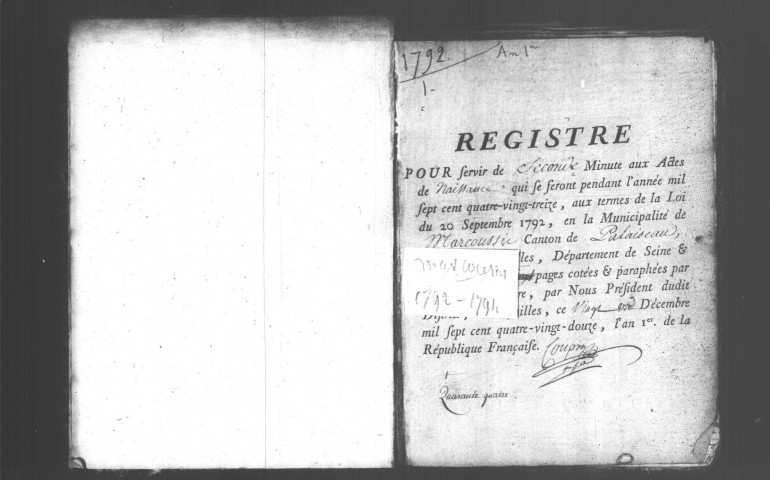 1792. An 1er
1.
REGISTRE
POUR servir de Seconde Minute aux Actes
de Naissance, qui se seront pendant l'année mil
sept cent quatre-vingt-treize, aux termes de la Loi
du 20 Septembre 1792, en la Municipalité de
Marcoussis Canton de Palaiseau,
lles, Département de Seine &
pages cotées & paraphées par
re, par Nous Président dudit
illes, ce Vingt Décembre
mil sept cent quatre-vingt-douze, l'an 1er. de la
République Française.
Marcoussis
1792-1794
Quarante quatre.